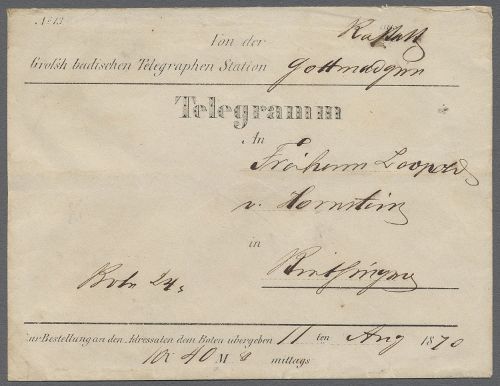 No 13.
Rastatt
Von der
Grossh badischen Telegraphen Station Gottmadgen
Telegramm
An
Freiherrn Leopold
v. Hornstein
in
Binthingen
Bote 24
Zur Bestellung an den Adressaten dem Boten übergeben 11 ten Aug 1870
10 U 40 M mittags